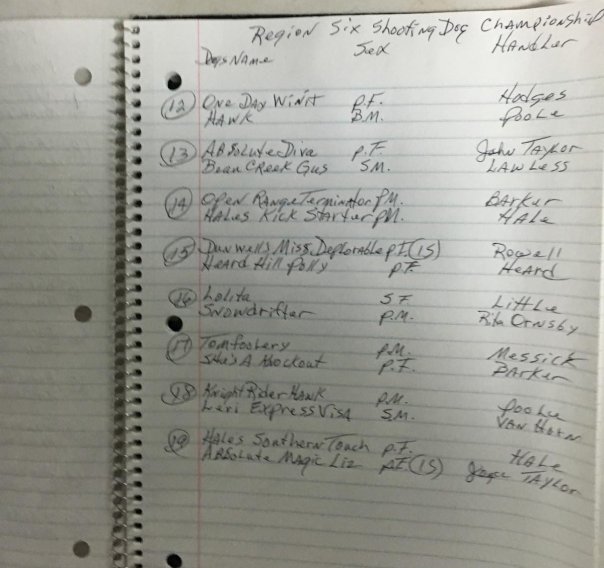 Region Six Shooting Dog Championship
Dogs Name Sex Handler
12 One Day Winit P.F. Hodges
Hawk B.M. Poole
13 Absolute Diva P.F. John Taylor
Bean Creek Gus S.M. Lawless
14 Open Range Terminator P.M. Barker
Hales Kick Starter P.M. Hale
15 Dunwells Miss Deplorable P.F. (IS) Rowell
Heard Hill Polly P.F. Heard
16 Lolita S.F. Little
Snowdrifter P.M. Rita Ornsby
17 Tomfoolery P.M. Messick
She's A Knockout P.F. Barker
18 Knight Rider Hawk P.M. Poole
Levi Express Visa S.M. Van Horn
19 Hales Southern Touch P.F. Hale
Absolute Magic Liz P.F. (IS) Taylor